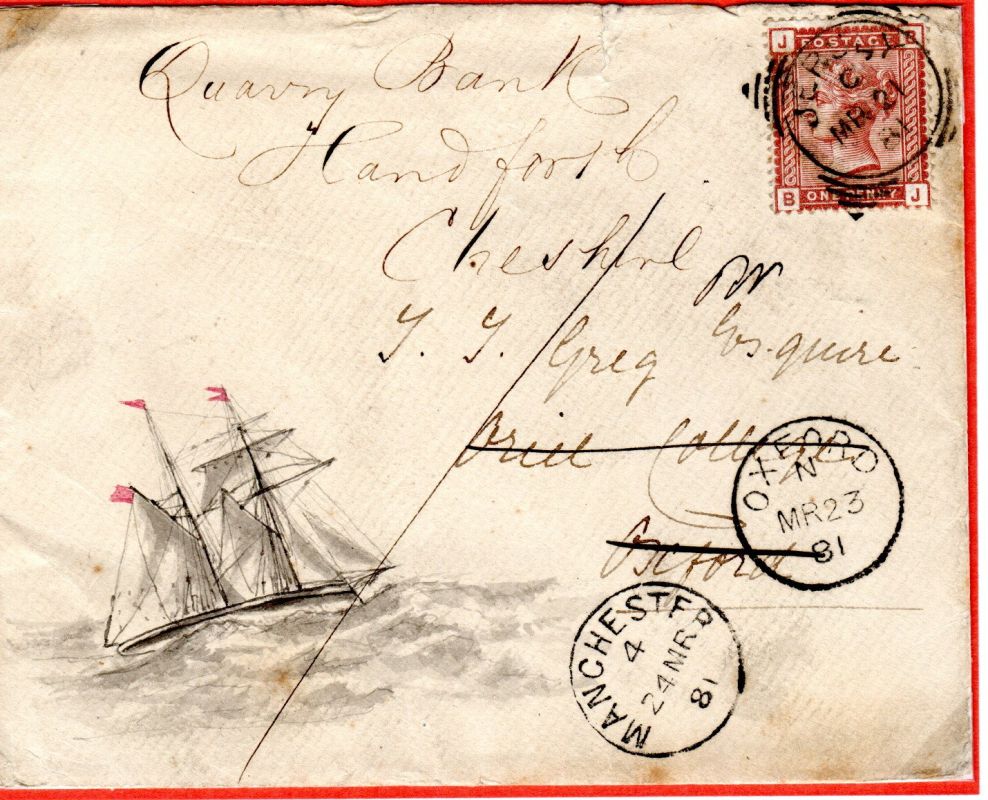 Quarry Bank
Handforth
Cheshire
T. T. Greg Esquire
Oriel College
Oxford
J POSTAGE B
ONE PENNY
B J
C
MR 21
81
OXFORD
N
MR 23
81
MANCHESTER
4
24 MR
81